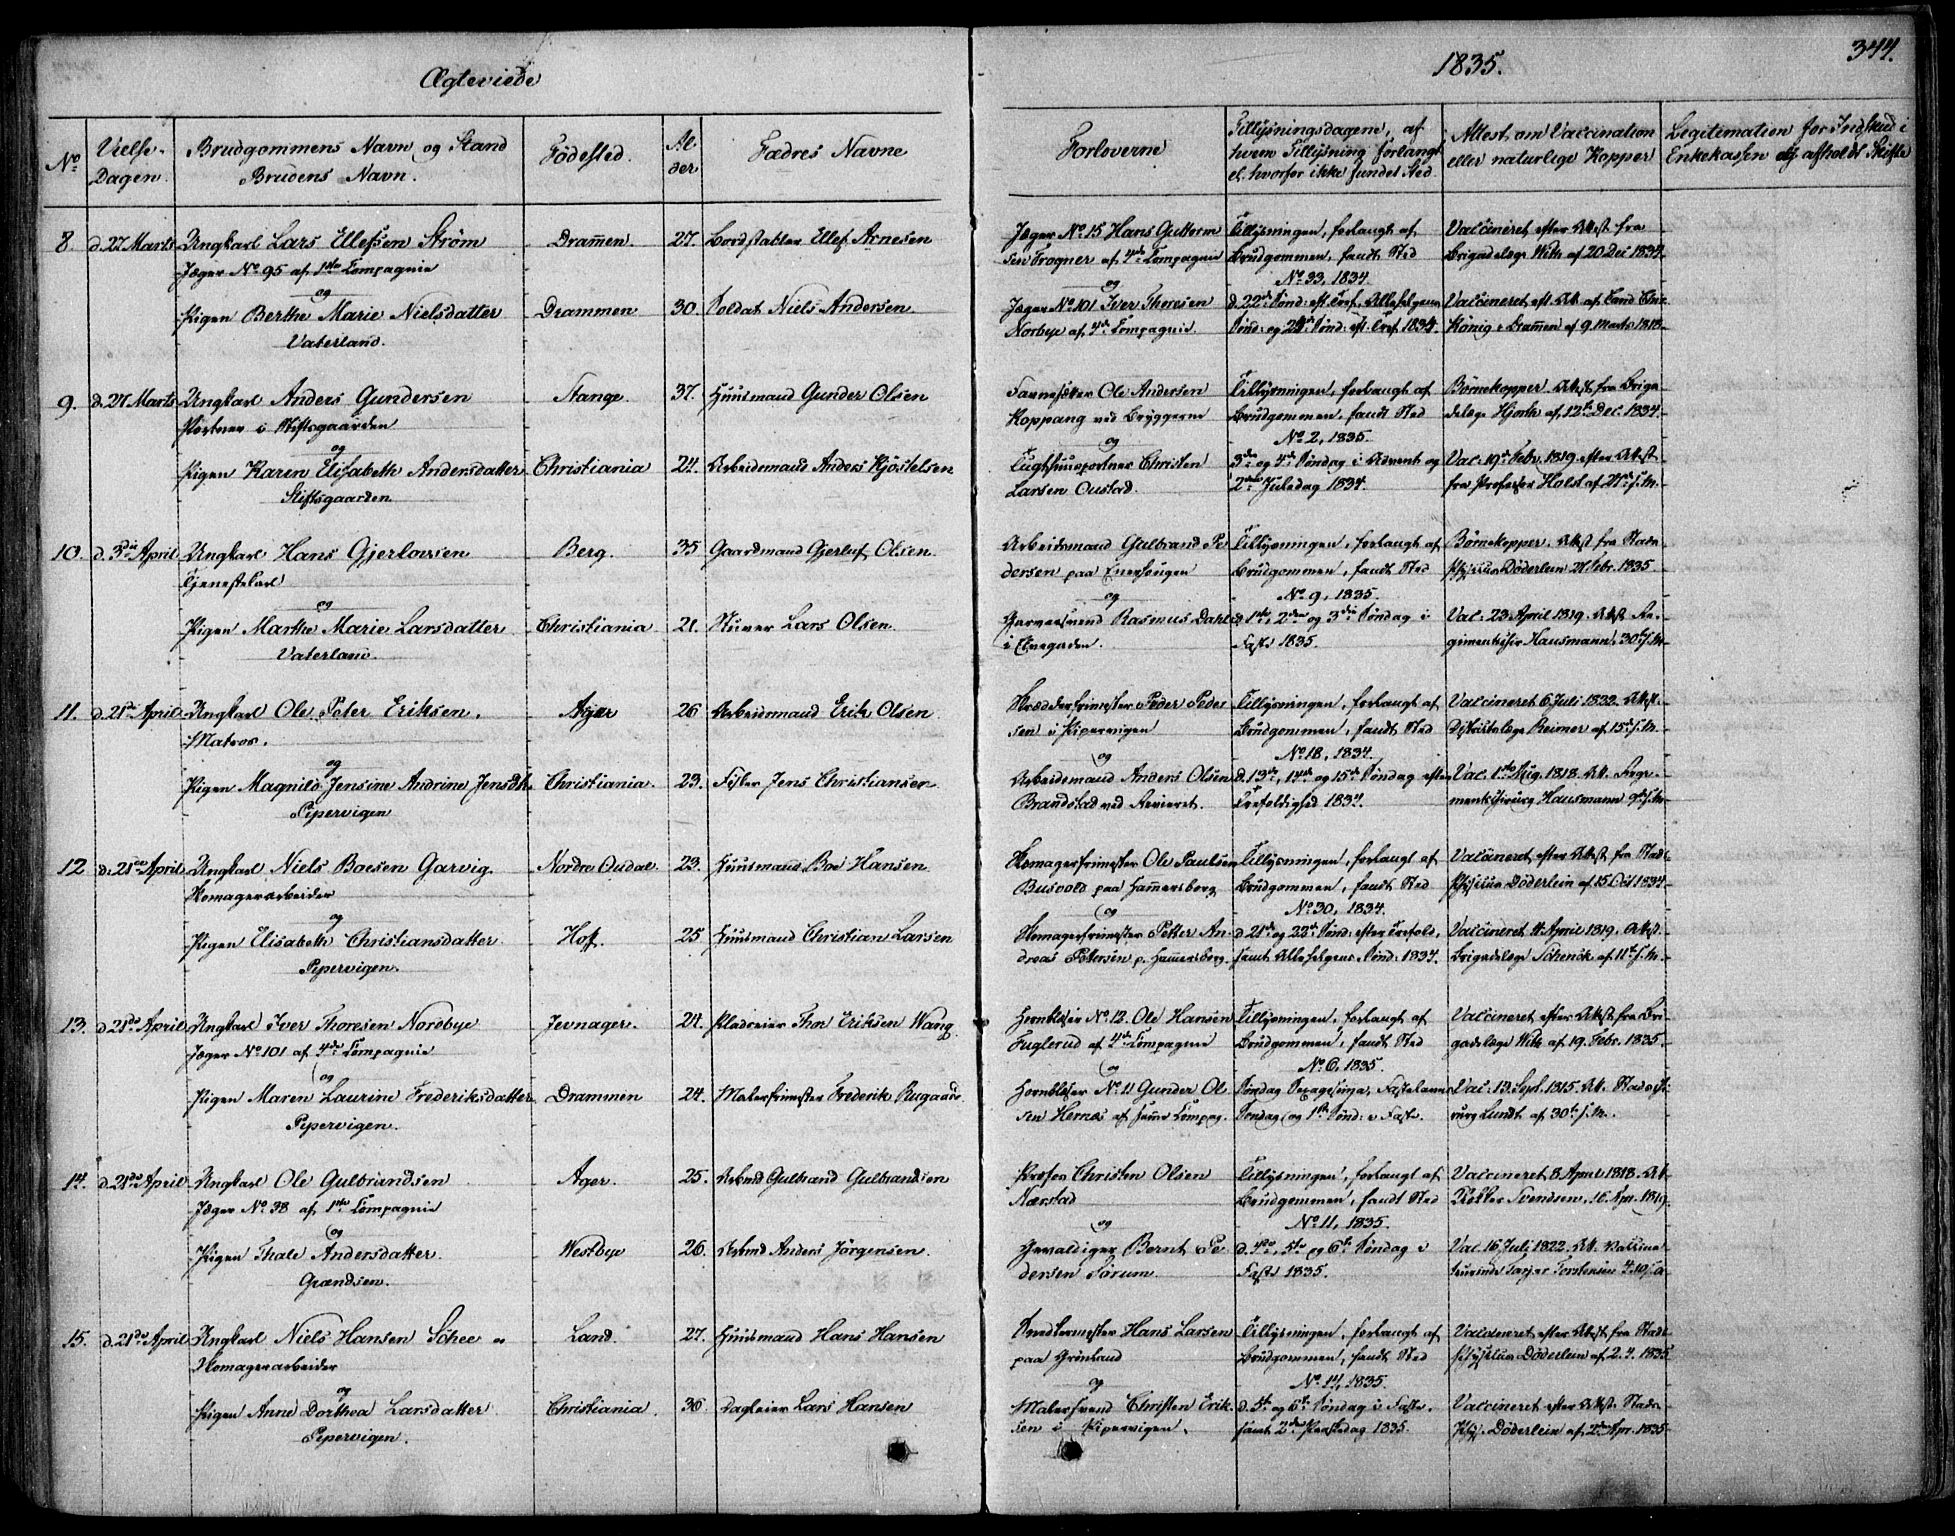 Ægteviede
1835.
344.
No.
Vielse-Dagen.
Brudgommens Navn og Stand
Brudens Navn.
Fødested.
Alder
Fædres Navne
Forloverne
Tillysningsdagene, af
hvem Tillysning forlangt
el. hvorfor ikke fundet Sted.
Attest om Vaccination
eller naturlige Kopper
Legitimation for Indskud i
Enkekassen og afholdt Skifte
8. d. 27 Marts Ungkarl Lars Ellefsen Strøm Dramen. 27. Bordstabler Ellef Arnesen
Jæger No. 95 af 1ste Compagnie
og
Pigen Berthe Marie Nielsdatter Drammen 30. Soldat Niels Andersen
Vaterland.
Jæger No. 15 Hans Guttorm Tillysningen, forlangt af Vaccineret efter Attest fra
sen Frogner af 4de Compagnie Brudgommen, fandt Sted Brigadelæge With af 20 Dec 1834.
og No. 33, 1834.
Jæger No. 101 Iver Thoresen d. 22de Sønd: eft. Tref., Allehelgens Vaccineret eft. Att. af Land Chir.
Norbye af 4de Compagnie. Sønd: og 24de Sønd: eft. Tref. 1834. König i Dramen af 9 Marts 1818.
9. d. 27 Marts Ungkarl Anders Gundersen Stange. 37. Huusmand Gunder Olsen
Portner i Stiftsgaarden
og
Pigen Karen Elisabeth Andersdatter Christiania 24. Arbeidsmand Anders Kjöstelsen
Stiftsgaarden
Ole Andersen Tillysningen, forlangt af Børnekopper. Attest fra Briga
Koppang ved Bryggerne Brudgommen, fandt Sted delæge Hjorth af 12te Dec. 1834.
og No. 2, 1835.
Tugthuusportner Christen 3die og 4de Søndag i Advent og Vac: 19de Febr. 1819 efter Attest
Larsen Oustad. 2den Juledag 1834. fra Professor Holst af 27de s. M.
10. d. 3die April Ungkarl Hans Gjerlovsen Berg. 35 Gaardmand Gjerluf Olsen.
Tjenestekarl
og
Pigen Marthe Marie Larsdatter Christiania. 21. Stuver Lars Olsen.
Vaterland.
Arbeidsmand Gulbrand Pe Tillysningen, forlangt af Børnekopper. Attest fra Stads
dersen paa Enerhougen Brudgommen, fandt Sted Döderlein 21 Febr. 1835.
og No. 9, 1835.
Garversvend Rasmus Dahl d. 1ste, 2den og 3die Søndag i Vac: 23 April 1819. Attest Re-
i Elvegaden. Faste 1835. gimentschir Hausmann 30te s. M.
11. d. 21de April Ungkarl Ole Peter Eriksen. Ager 26 Arbeidsmand Erik Olsen
Matros.
og
Pigen Magnild Jensine Andrine Jensdtr. Christiania. 23. Fisker Jens Christiansen
Pipervigen
Skrædderfrimester Peder Peder Tillysningen, forlangt af Vaccineret 6 Juli 1832. Attest.
sen i Pipervigen Brudgommen, fandt Sted Distriktslæge Reimer af 15de s. M.
og No. 18, 1834.
Arbeidsmand Anders Olsen d. 13de, 14de og 15de Søndag efter Vac: 1ste Aug. 1818. Att. Rege-
Brandstad ved Revieret. Trefoldighed 1834. mentschirurg Hausmann 9de s. M.
12 d. 21de April Ungkarl Niels Boesen Garvig. Nordre Oudal. 23. Huusmand Boe Hansen
Skomagerarbeider
og
Pigen Elisabeth Christiansdatter Hof. 25 Huusmand Christian Larsen
Pepervigen.
Skomagerfrimester Ole Paulsen Tillysningen, forlangt af Vaccineret efter Attest fra Stads
Busvold paa Hammersborg Brudgommen, fandt Sted Döderlein af 15 Oct 1834.
og No. 30, 1834.
Skomagerfrimester Petter An- d. 21de og 22de Sønd: efter Trefold. Vaccineret 11 April 1819. Attest.
dreas Petersen p. Hammersborg. samt Allehelgens Sønd: 1834. Brigadelæge Schenck af 11te s. M.
13. d. 21de April Ungkarl Iver Thoresen Nordbye Jevnager. 24. Pladseier Thor Eriksen Wang
Jæger No. 101 af 4de Compagnie
og
Pigen Maren Laurine Frederiksdatter Drammen 24. Malerfrimester Frederik Rugaard.
Pepervigen.
Hornblæser No. 12. Ole Hansen Tillysningen, forlangt af Vaccineret efter Attest fra Bri
Fuglerud af 4de Compagnie Brudgommen, fandt Sted gadelæge With af 19. Febr. 1835.
og No. 6, 1835.
Hornblæser No. 11 Gunder Ol Søndag Sexagesima, Fastelavns Vac: 13. Sept. 1815. Att. Stadschi
sen Hernæs af samme Compag. Søndag og 1ste Sønd: i Faste. rurg Lundt af 30te s. M.
14. d. 21de April Ungkarl Ole Gulbrandsen Ager. 25. Arbmd Gulbrand Gulbrandsen
Jæger No. 38 af 1ste Compagnie
og
Pigen Thale Andersdatter. Westbye 26. Arbmd Anders Jörgensen.
Grændsen.
Profos Christen Olsen Tillysningen, forlangt af Vaccineret 8 April 1818. Att.
Nærstad Brudgommen, fandt Sted Klokker Svendsen, 16 Apr. 1819.
og No. 11, 1835.
Gevaldiger Bernt Pe d. 4de, 5te og 6te Søndag i Vac. 16 Juli 1822. Att. Vaccina
dersen Sörum. Faste 1835. Tarjer Torstensen
15. d. 21de April Ungkarl Niels Hansen Sohee Land. 27. Huusmand Hans Hansen
Skomagerarbeider
og
Pigen Anne Dorthea Larsdatter Christiania. 36. Dagleier Lars Hansen
Pepervigen.
Hans Larsen Tillysningen, forlangt af Vaccineret efter Attest fra Stads
paa Grönland Brudgommen, fandt Sted Döderlein af 2. 4. 1835
og No. 14, 1835.
Malersvend Christen Erik- d. 5te og 6te Søndag i Faste, Vaccineret efter Attest Stads
sen i Pipervigen. samt 2den Paaskedag 1835. Döderlein af 2den Apr. 1835